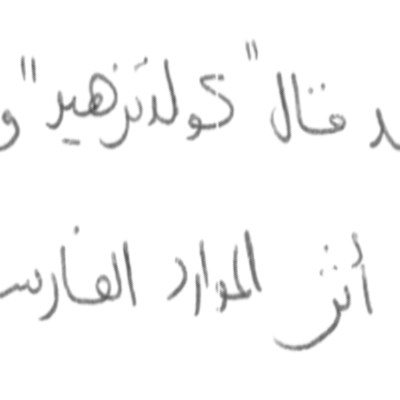 قال "كولدتزهير" و
أثر الموارد الفارسـ